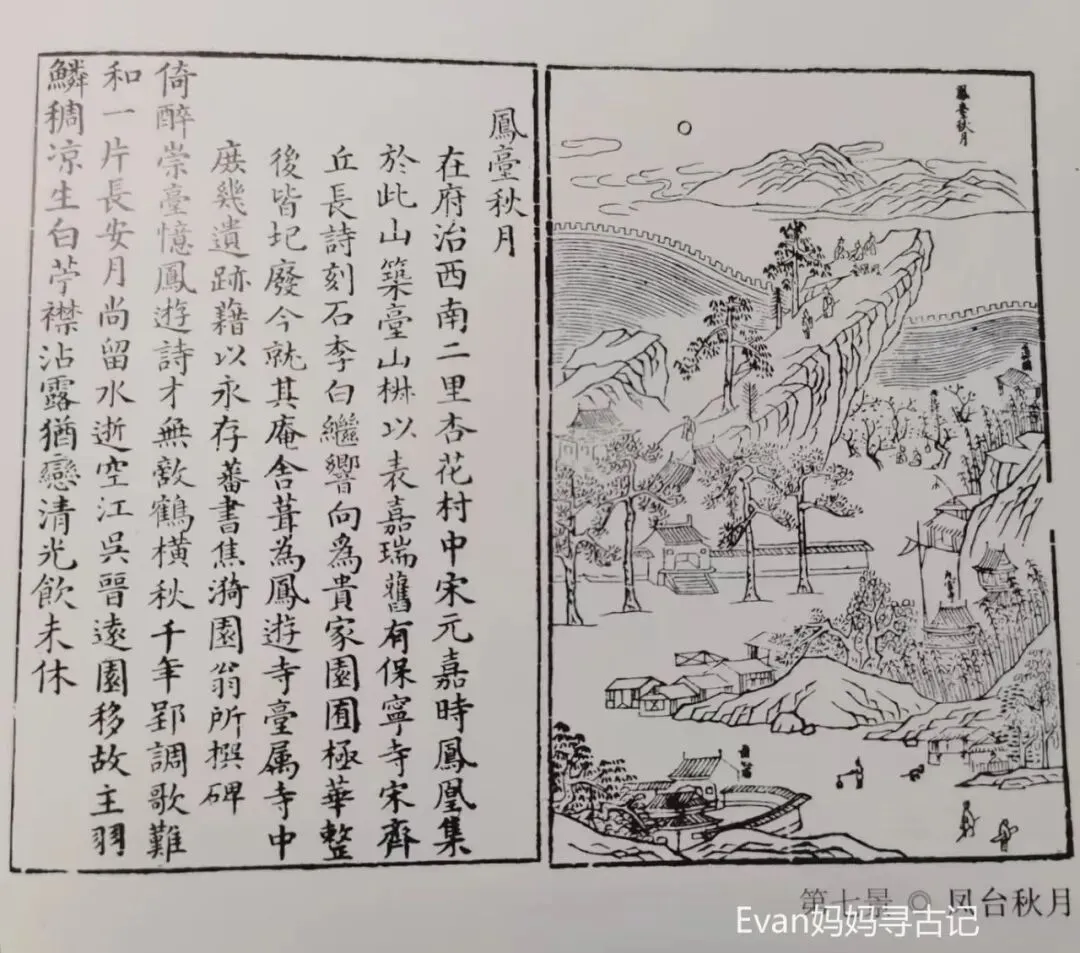 鳳臺秋月
在府治西南二里杏花村中宋元嘉時鳳凰集
於此山築臺山椒以表嘉瑞舊有保寧寺宋齊
丘長詩刻石李白繼響向為貴家園囿極華整
後皆圮廢今就其庵舍葺為鳳遊寺臺属寺中
庻幾遺跡藉以永存蕃書焦漪園翁所撰碑
倚醉崇臺憶鳳遊詩才無敵鶴橫秋千年郢調歌難
和一片長安月尚留水逝空江吳晉遠園移故主羽
鱗稠凉生白苧襟沾露猶戀清光飲未休
鳳臺秋月
第七景 ◎ 凤台秋月
Evan妈妈寻古记